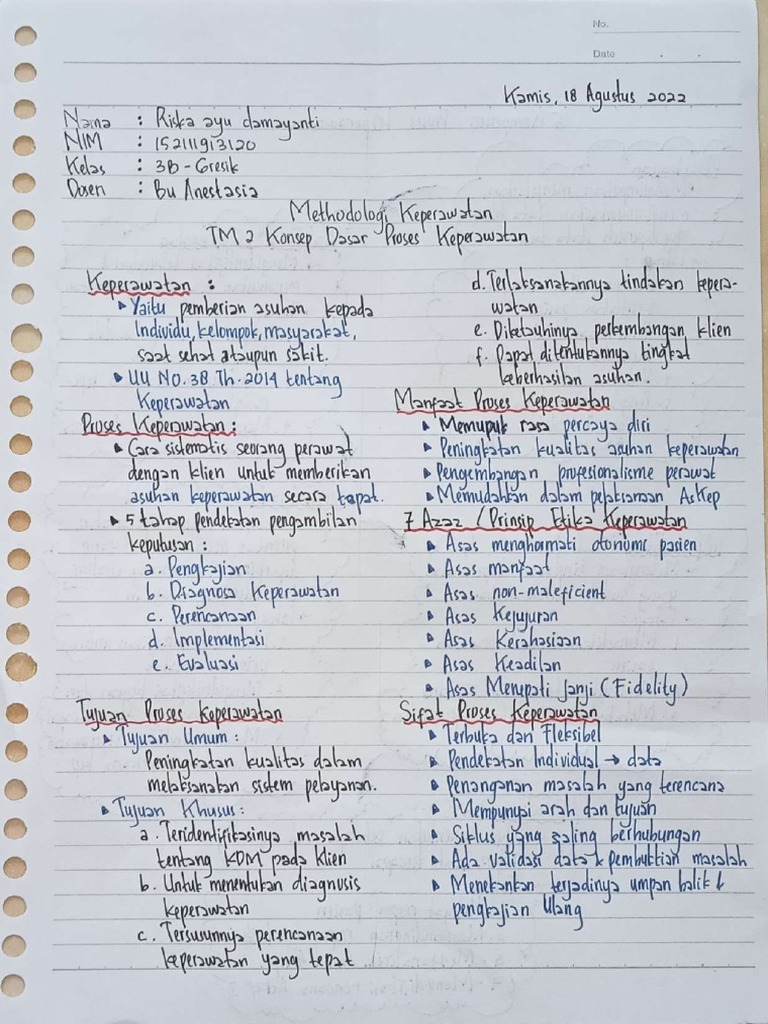 No.
Date
Kamis, 18 Agustus 2022
Nama : Riska ayu damayanti
NIM : 152111913120
Kelas : 3B - Gresik
Dosen : Bu Anestasia
Methodologi Keperawatan
TM 2 Konsep Dasar Proses Keperawatan
Keperawatan :
Yaitu pemberian asuhan kepada
Individu, kelompok, masyarakat,
saat sehat ataupun sakit.
UU NO. 38 Th. 2014 tentang
Keperawatan
Proses Keperawatan :
Cara sistematis seorang perawat
dengan klien untuk memberikan
asuhan keperawatan secara tepat.
5 tahap pendekatan pengambilan
keputusan :
a. Pengkajian
b. Diagnosa Keperawatan
c. Perencanaan
d. Implementasi
e. Evaluasi
Tujuan Proses Keperawatan
Tujuan Umum :
Peningkatan kualitas dalam
melaksanakan sistem pelayanan.
Tujuan Khusus :
a. Teridentifikasinya masalah
tentang KDM pada klien
b. Untuk menentukan diagnosis
keperawatan
c. Tersusunnya perencanaan
keperawatan yang tepat
d. Terlaksanakannya tindakan kepera-
watan
e. Diketahuinya perkembangan klien
f. Dapat ditentukannya tingkat
keberhasilan asuhan.
Manfaat Proses Keperawatan
Memupuk rasa percaya diri
Peningkatan kualitas asuhan keperawatan
Pengembangan profesionalisme perawat
Memudahkan dalam pelaksanaan Askep
7 Azaz / Prinsip Etika Keperawatan
Asas menghormati otonomi pasien
Asas manfaat
Asas non-maleficient
Asas Kejujuran
Asas Kerahasiaan
Asas Keadilan
Asas Menepati Janji (Fidelity)
Sifat Proses Keperawatan
Terbuka dan Fleksibel
Pendekatan Individual → data
Penanganan masalah yang terencana
Mempunyai arah dan tujuan
Siklus yang saling berhubungan
Ada validasi data & pembuktian masalah
Menekankan terjadinya umpan balik &
pengkajian Ulang